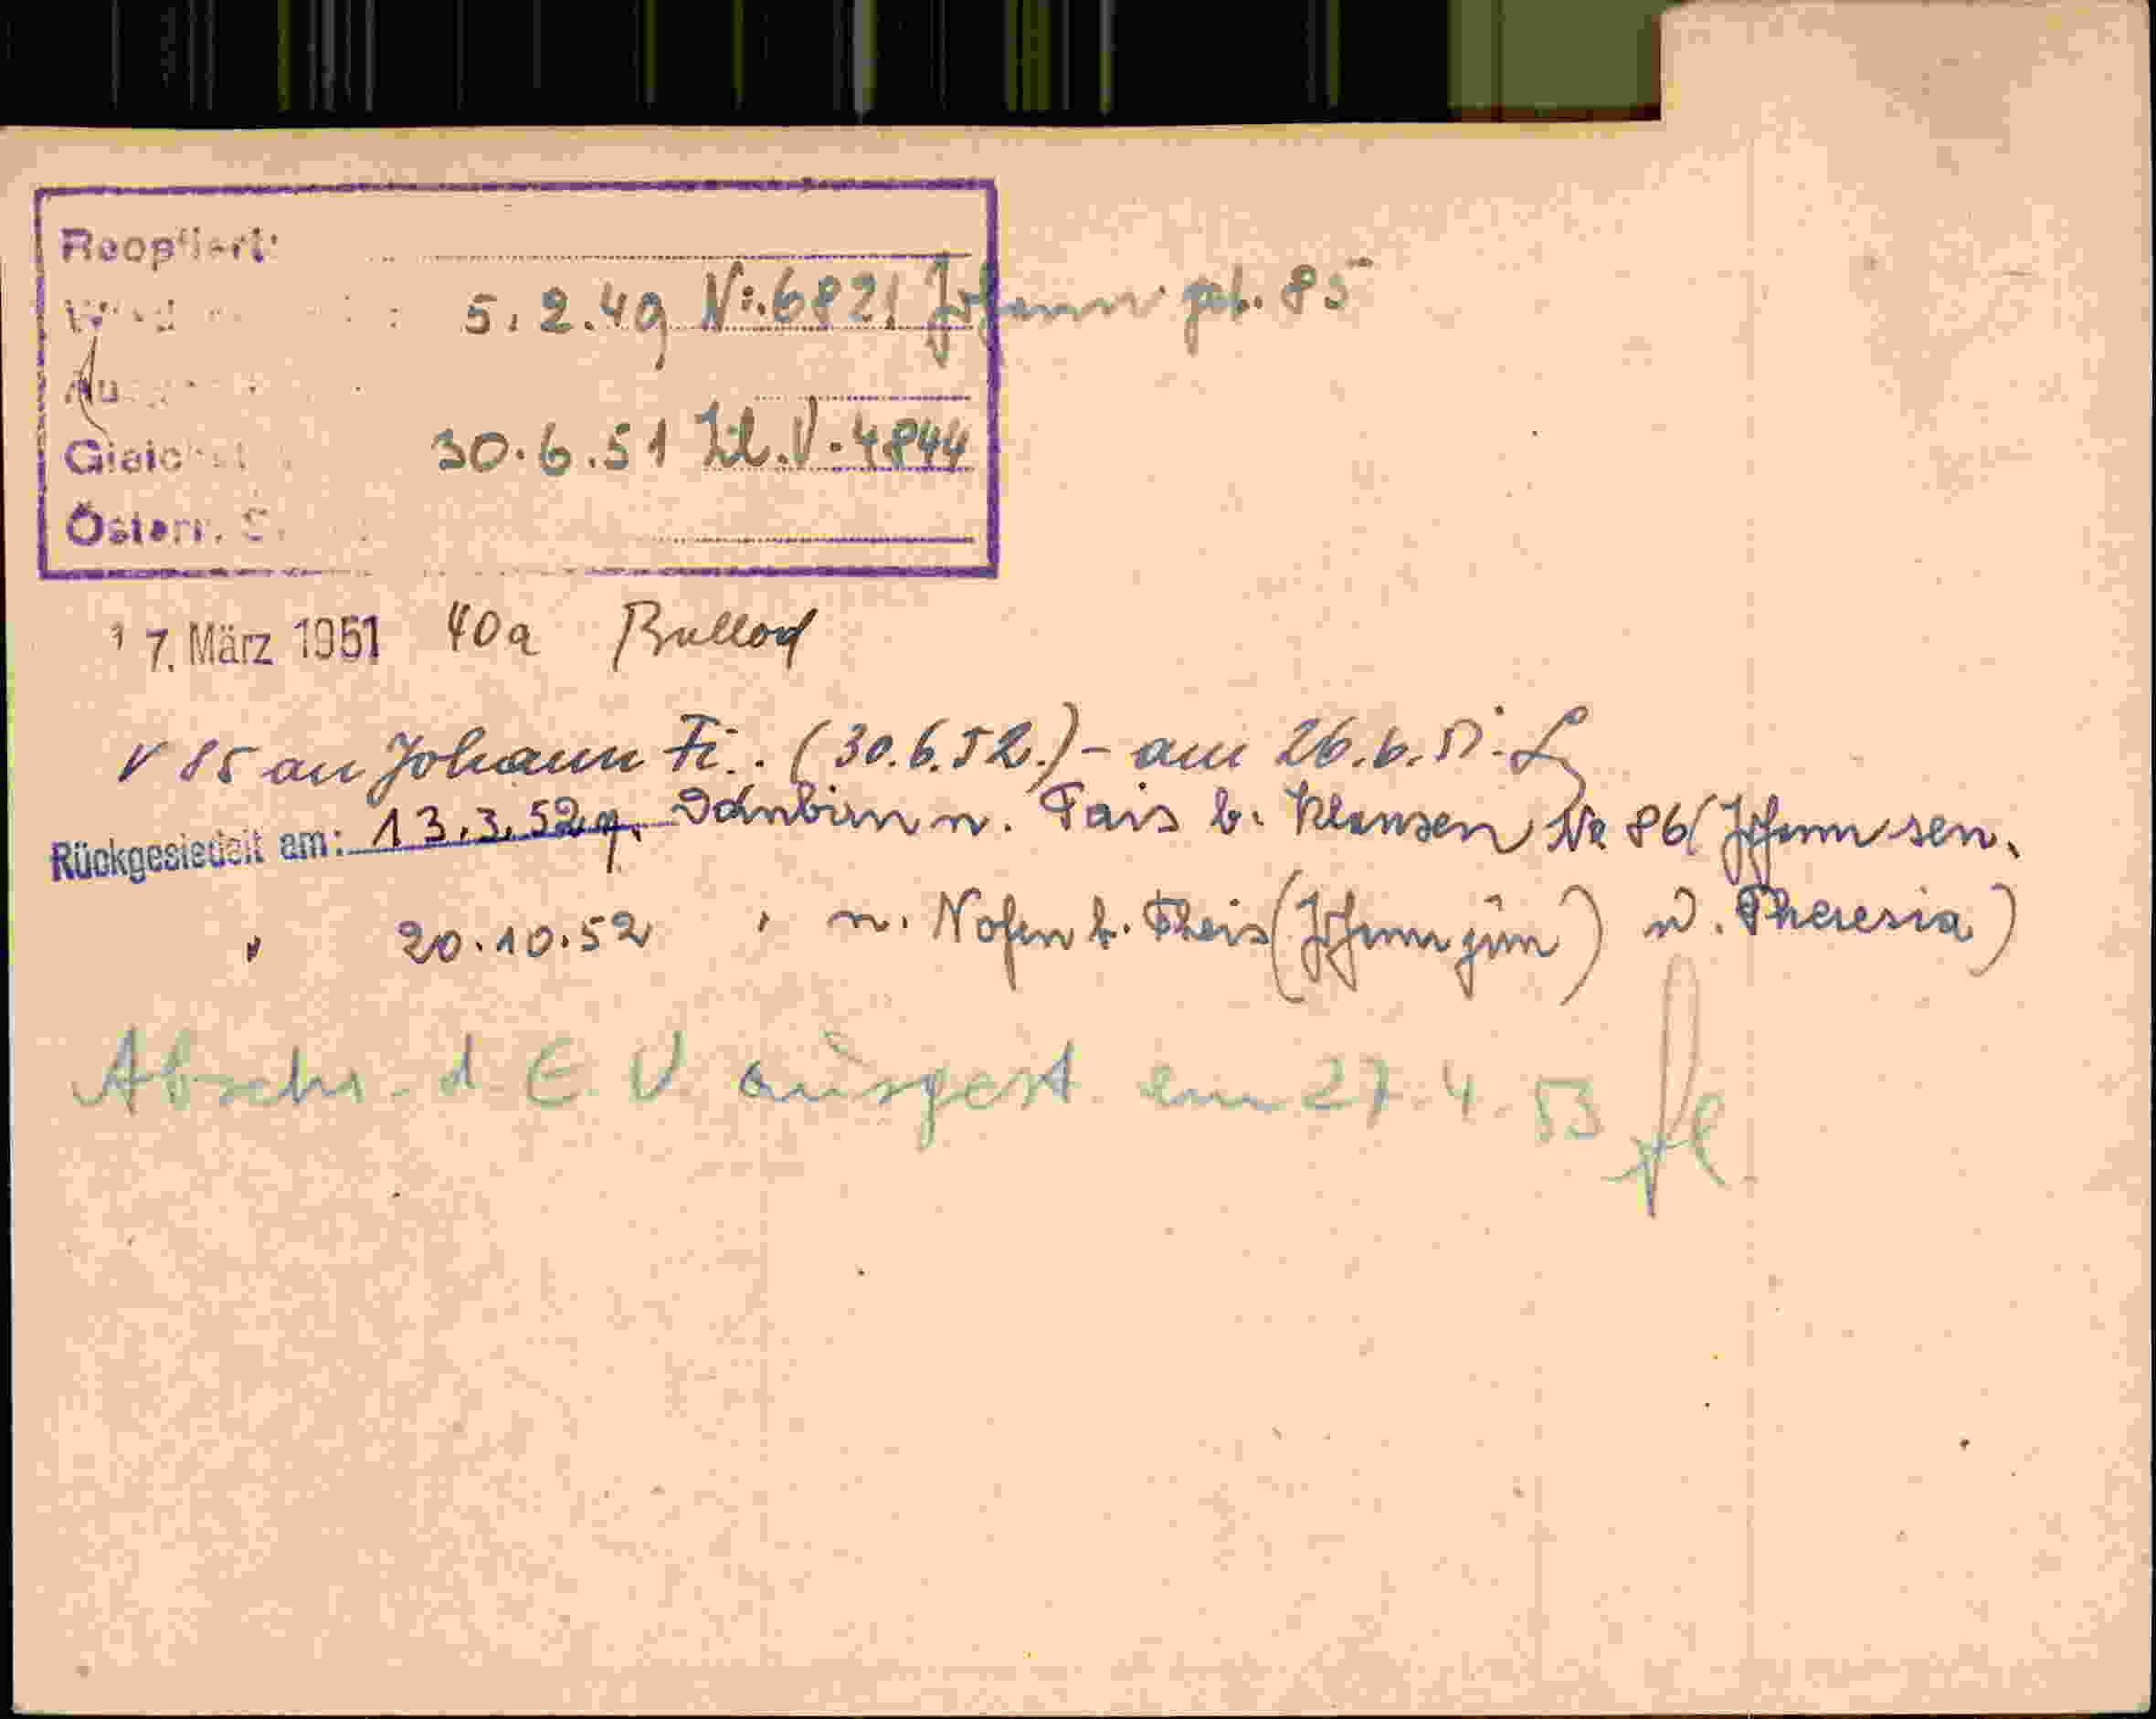 Reoptiert:
5.2.49 Nr. 6821 Johann geb. 85
30.6.51 Zl. V. 4844
Österr. S
17. März 1951 40a
V 85 an Johann Fi.. (30.6.52.) - am 26.6.51.
Rückgesiedelt am: 13.3.52 v. Dornbirn n. Tais b. Klausen Nr 86 (Johann sen.
" 20.10.52 " n. Nofen b. Theis (Johann jun) u. Theresia)
Abschr. d. E. V. ausgest. am 27.4.53